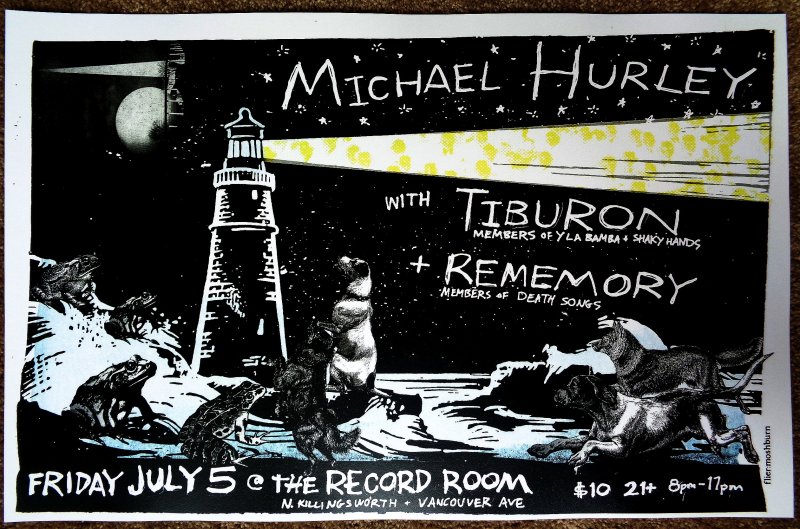 MICHAEL HURLEY
WITH TIBURON
MEMBERS OF Y LA BAMBA + SHAKY HANDS
+ REMEMORY
MEMBERS OF DEATH SONGS
FRIDAY JULY 5 @ THE RECORD ROOM
N. KILLINGSWORTH + VANCOUVER AVE
$10 21+ 8pm-11pm
flier:moshburn